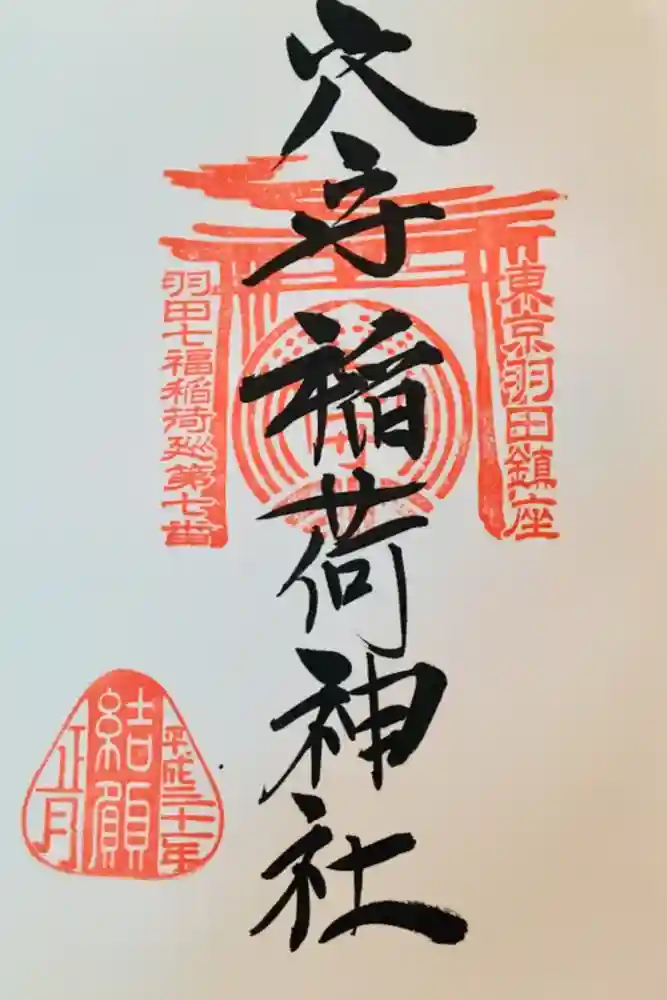 東京羽田鎮座
穴守稲荷神社
羽田七福稲荷巡第七番
平成三十一年
結願
正月